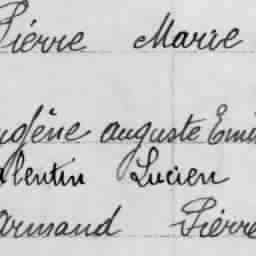 Pierre Marie
ugène auguste Emi
alentin Lucien
Armand Pierre